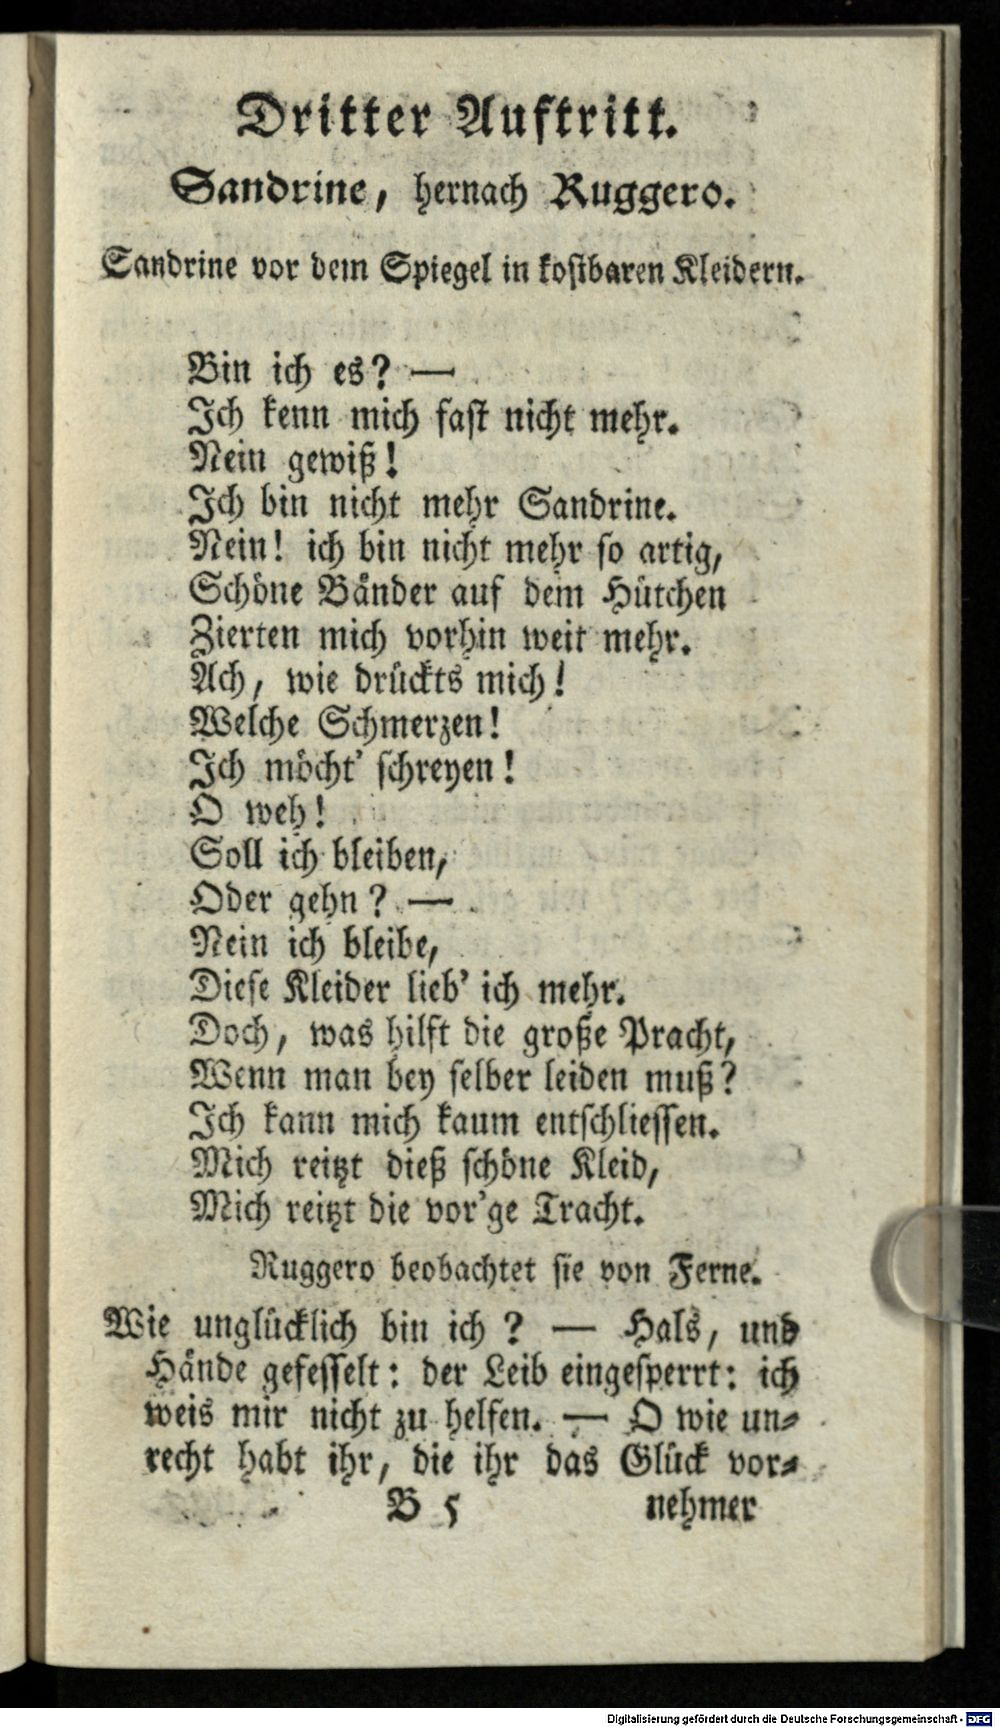 Dritter Auftritt.
Sandrine, hernach Ruggero.
Sandrine vor dem Spiegel in kostbaren Kleidern.
Bin ich es? —
Ich kenn mich fast nicht mehr.
Nein gewiß!
Ich bin nicht mehr Sandrine.
Nein! ich bin nicht mehr so artig,
Schöne Bänder auf dem Hütchen
Zierten mich vorhin weit mehr.
Ach, wie drückts mich!
Welche Schmerzen!
Ich möcht' schreyen!
O weh!
Soll ich bleiben,
Oder gehn? —
Nein ich bleibe,
Diese Kleider lieb' ich mehr.
Doch, was hilft die große Pracht,
Wenn man bey selber leiden muß?
Ich kann mich kaum entschliessen.
Mich reitzt dieß schöne Kleid,
Mich reitzt die vor'ge Tracht.
Ruggero beobachtet sie von Ferne.
Wie unglücklich bin ich? — Hals, und
Hände gefesselt: der Leib eingesperrt: ich
weis mir nicht zu helfen. — O wie un-
recht habt ihr, die ihr das Glück vor-
B 5 nehmer
Digitalisierung gefördert durch die Deutsche Forschungsgemeinschaft - DFG